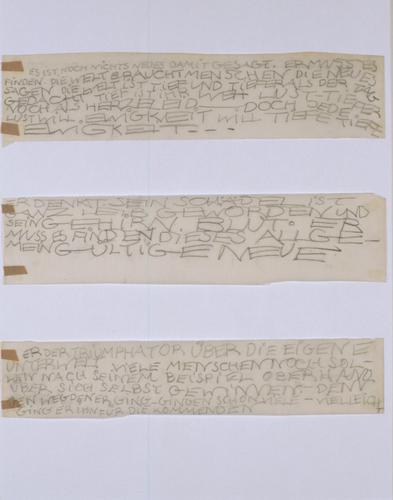 ES IST NOCH NICHTS NEUES DAMIT GESAGT. ER MUSS ES
FINDEN. DIE WELT BRAUCHT MENSCHEN DIE NEUES
SAGEN. DIE WELT IST TIEF UND TIEFER ALS DER TAG
GEDACHT. TIEF IST IHR WEH LUST-TIEFER
NOCH ALS HERZELEID — DOCH JEDE
LUST WILL EWIGKEIT WILL TIEFE TIEFE
EWIGKEIT---
ER DENKT SEIN SCHÄDEL IST
GANZ LEIB GEWORDEN UND
SEIN GEHIRN BLUT. ER
MUSS ES FINDEN DIESES ALLGE-
MEINGÜLTIGE NEUE
ER DER TRIUMPHATOR ÜBER DIE EIGENE
UNTERWELT. VIELE MENSCHEN NOCH SOL-
LEN NACH SEINEM BEISPIEL OBERHAND
ÜBER SICH SELBST GEWINNEN - DEN
DEN WEG DEN ER GING - GINGEN SCHON VIELE - VIELLEICHT
GING ER IHN FÜR DIE KOMMENDEN